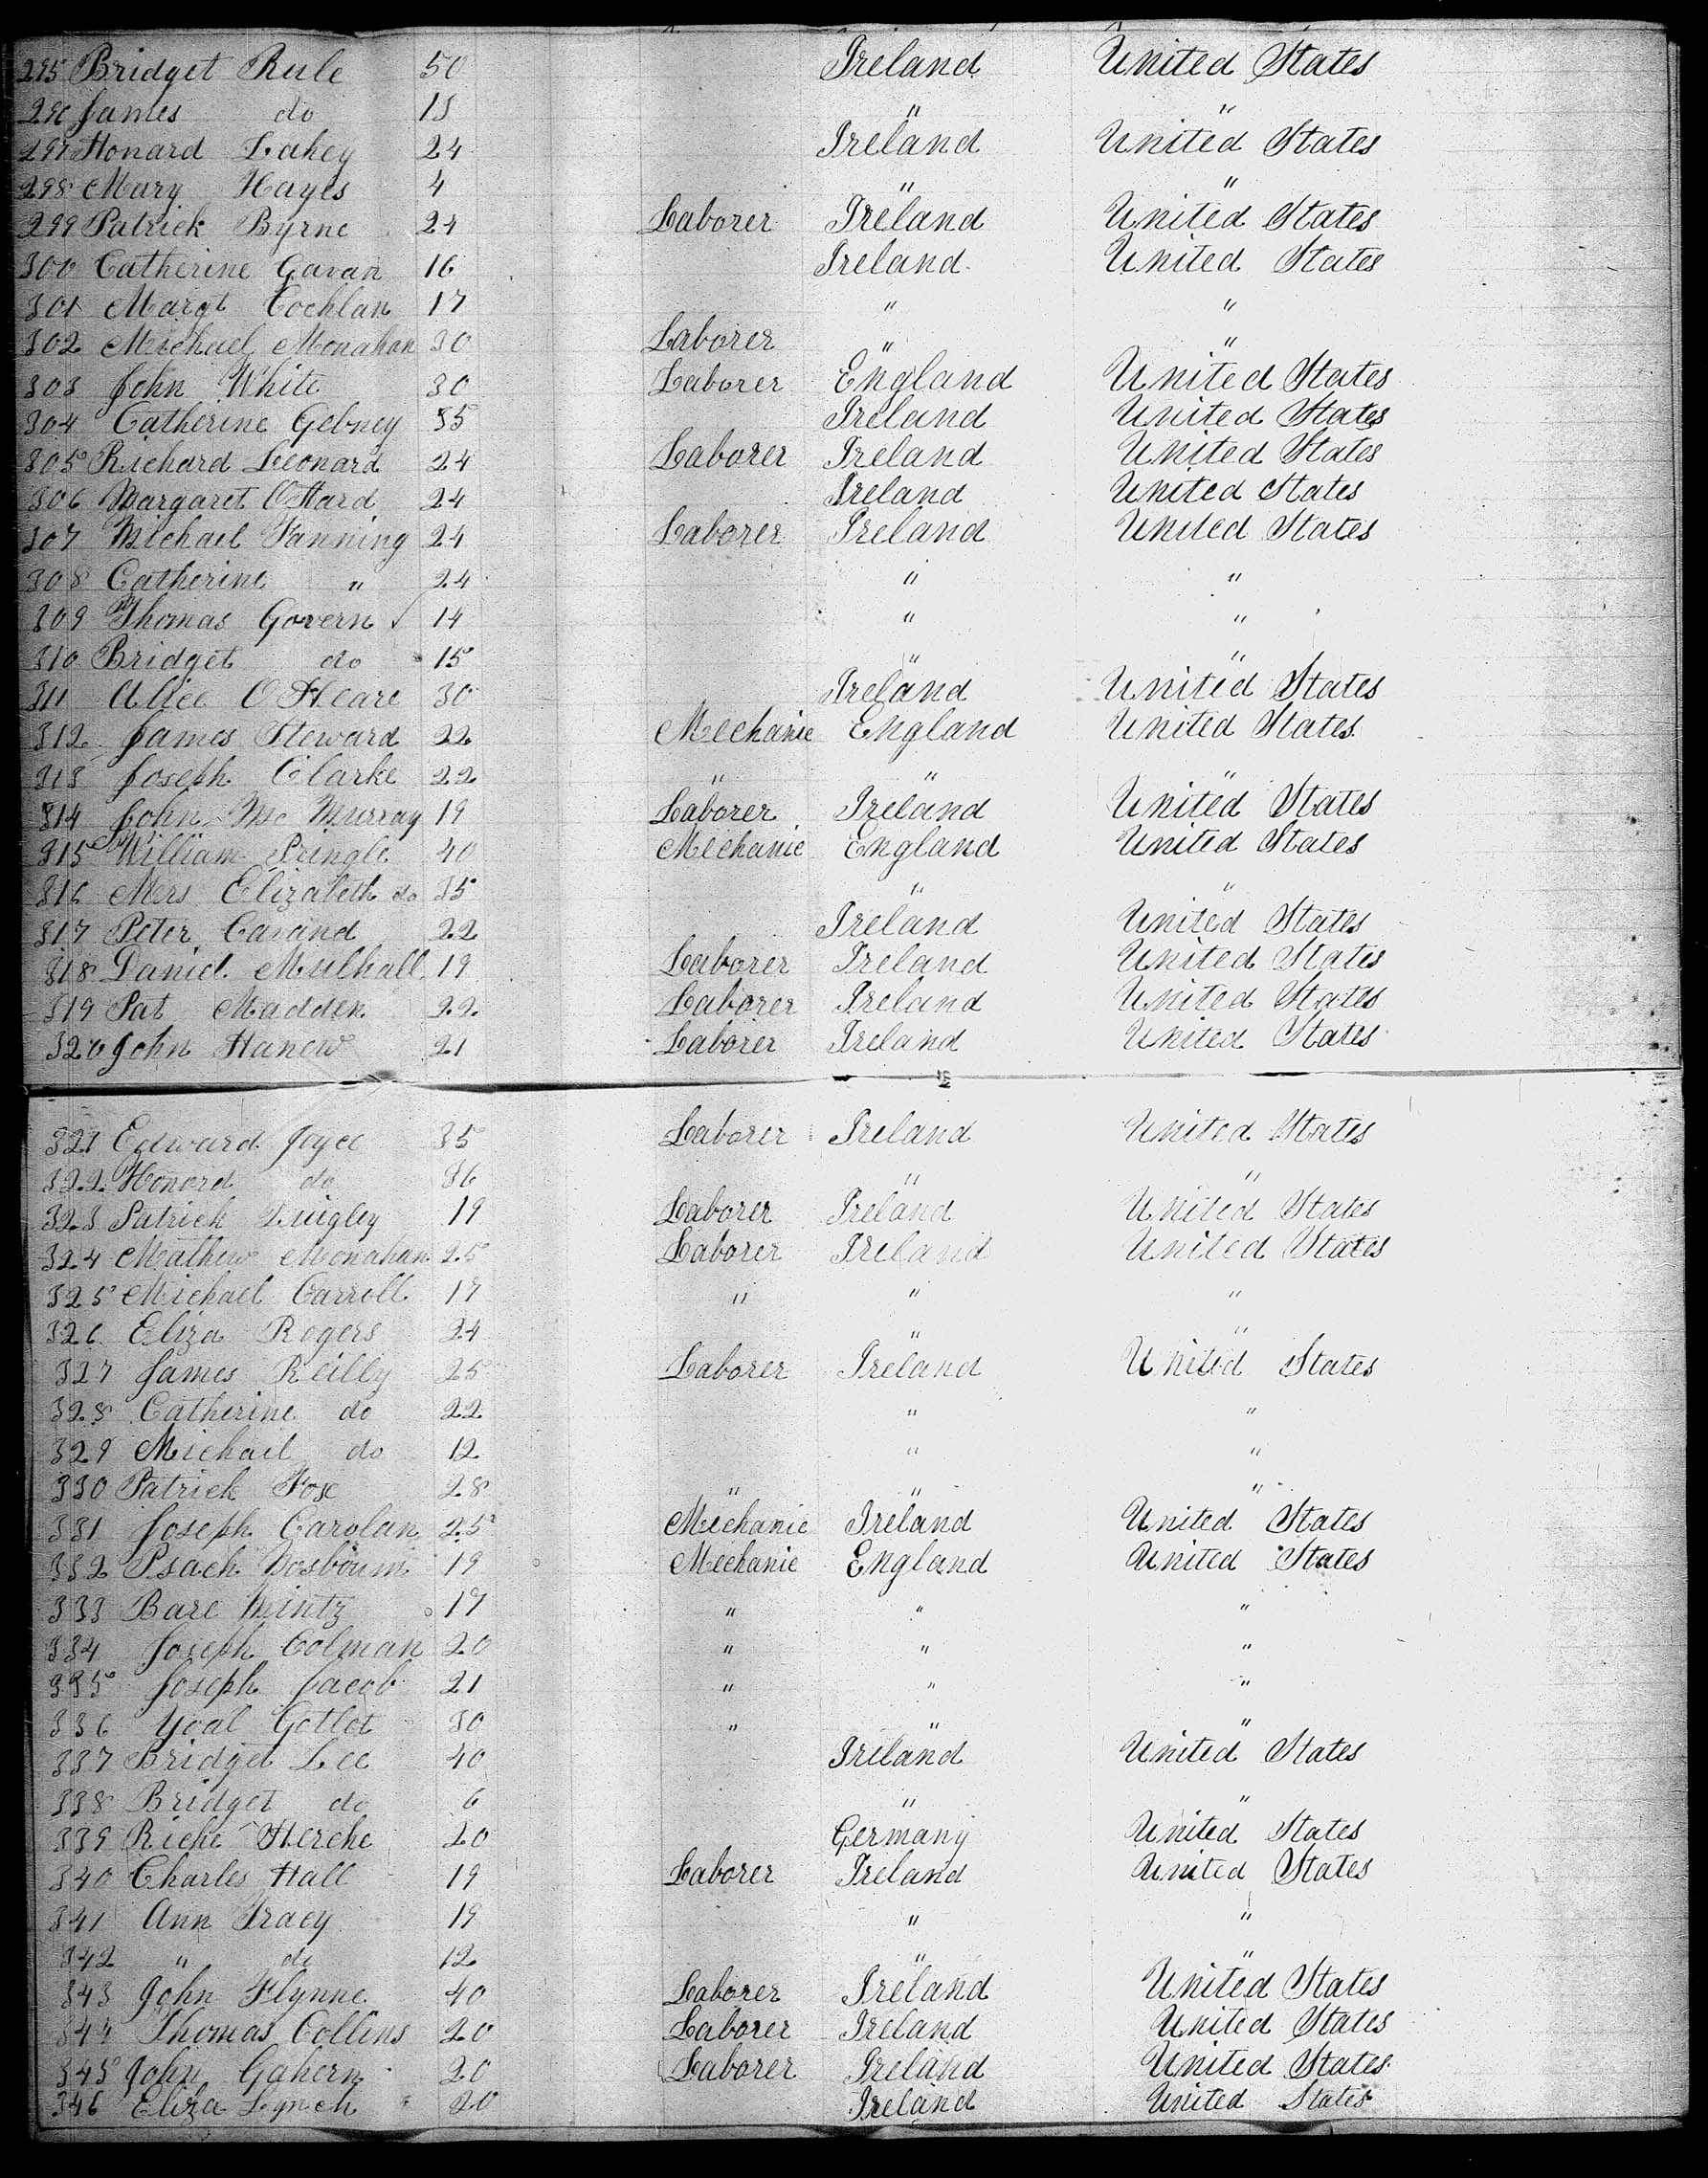 295 Bridget Rule 50 Ireland United States
296 James do 15 " "
297 Honard Lahey 24 Ireland United States
298 Mary Hayes 4 " "
299 Patrick Byrne 24 Laborer Ireland United States
300 Catherine Gavan 16 Ireland United States
301 Margt Cochlan 17 " "
302 Michael Monahan 30 Laborer " "
303 John White 30 Laborer England United States
304 Catherine Gebney 35 Ireland United States
305 Richard Leonard 24 Laborer Ireland United States
306 Margaret O'Hard 24 Ireland United States
307 Michael Fanning 24 Laborer Ireland United States
308 Catherine " 24 " "
309 Thomas Govern 14 " "
310 Bridget do 15 " "
311 Alice O'Heare 30 Ireland United States
312 James Steward 22 Mechanic England United States
313 Joseph Clarke 22 " " "
314 John Mc Murray 19 Laborer Ireland United States
315 William Pringle 40 Mechanic England United States
316 Mers Elizabeth do 35 " "
317 Peter Cavand 22 Ireland United States
318 Daniel Mulhall 19 Laborer Ireland United States
319 Pat Madden 22 Laborer Ireland United States
320 John Hanew 21 Laborer Ireland United States
321 Edward Joyce 35 Laborer Ireland United States
322 Honord do 36 " "
323 Patrick Quigley 19 Laborer Ireland United States
324 Mathew Monahan 25 Laborer Ireland United States
325 Michael Carroll 17 " " "
326 Eliza Rogers 24 " "
327 James Reilly 25 Laborer Ireland United States
328 Catherine do 22 " "
329 Michail do 12 " "
330 Patrick Fox 28 " " "
331 Joseph Carolan 25 Mechanic Ireland United States
332 Psach 19 Mechanic England United States
333 Bare Mintz 17 " " "
334 Joseph Colman 20 " " "
335 Joseph Jacob 21 " " "
336 Yoal Gotlet 30 " " "
337 Bridget Lee 40 Ireland United States
338 Bridget do 6 " "
339 Riche Herche 20 Germany United States
340 Charles Hall 19 Laborer Ireland United States
341 Ann Tracy 19 " "
342 " do 12 " "
343 John Flynne 40 Laborer Ireland United States
344 Thomas Collins 20 Laborer Ireland United States
345 John Gahern 20 Laborer Ireland United States
346 Eliza Lynch 20 Ireland United States